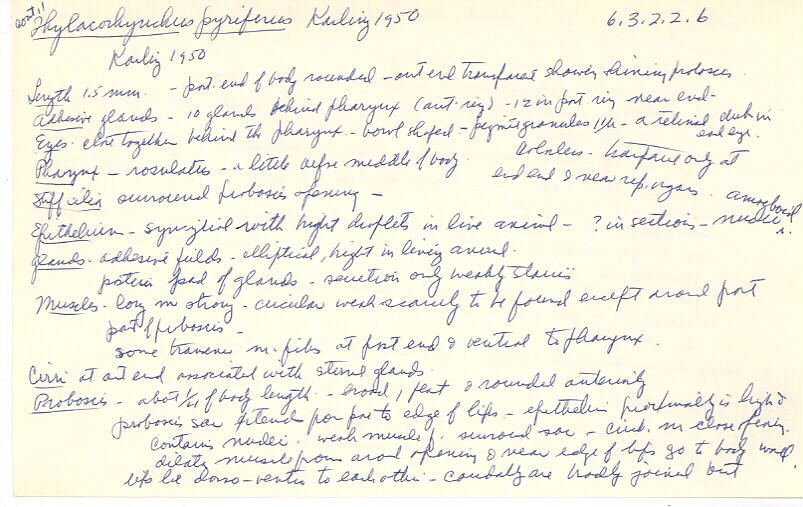 cont'd
Thylacorhynchus pyriferus Karling 1950 6.3.2.2.6
Karling 1950
Length 1.5 mm. - post. end of body rounded - ant end transparent showing shining proboscis
Adhesive glands - 10 glands behind pharynx (ant. ring) - 12 in post ring near end -
Eyes - close together behind the pharynx - bowl shaped - pigment granules - a retinal club in each eye.
Pharynx - rosulatus - a little before middle of body. Colorless - transparent only at
end and & near rep. organs.
Stiff cilia surround proboscis opening -
Epithelium - syncytial with bright droplets in live animal - ? in sections - nuclei amoeboid
Glands - adhesive fields - elliptical, bright in living animal.
posterior pad of glands - secretion only weakly stains
Muscles - long m strong - circular weak scarcely to be found except around post
part of proboscis -
some transverse m. fibers at post end & ventral to pharynx.
Cirri at ant end associated with glands.
Proboscis - about of body length - broad, & rounded anteriorly
proboscis sac extend to edge of lips - epithelium proximally is high &
contains nuclei. weak muscle f. surround sac - circ. m close opening.
dilator muscles from around opening & near edge of lips go to body wall.
lips lie dorso-ventro to each other - caudally are broadly joined but